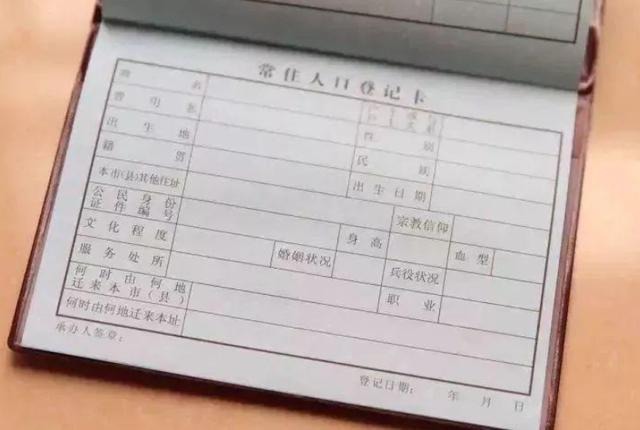 常住人口登记卡
姓名
曾用名 性别
出生地 民族
籍贯 出生日期
本市(县)其他住址 宗教信仰
公民身份
证件编号 身高 血型
文化程度 婚姻状况 兵役状况
服务处所 职业
何时由何地
迁来本市(县)
何时由何地迁来本址
承办人签章:
登记日期: 年 月 日